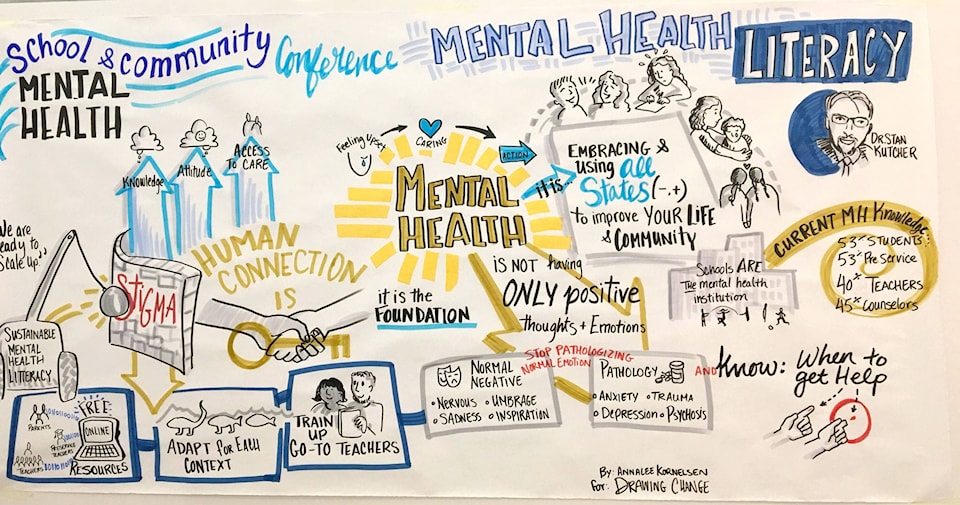 School & Community
Conference
MENTAL
HEALTH
MENTAL HEALTH
LITERACY
DR. STAN
KUTCHER
Knowledge
Attitude
ACCESS
TO CARE
Feeling Upset
CARING
ACTION
MENTAL
HEALTH
it is...
EMBRACING &
using all
States (-,+)
to improve YOUR LIFE
& COMMUNITY
We are
ready to
"Scale up"
STIGMA
HUMAN
CONNECTION
IS
it is the
FOUNDATION
IS NOT having
ONLY positive
thoughts + Emotions
Schools ARE
The mental health
institution
CURRENT MH Knowledge:
53% STUDENTS
53% Pre Service
40% TEACHERS
45% Counselors
SUSTAINABLE
MENTAL
HEALTH
LITTERACY
FREE
PARENTS
PRESERVICE
TEACHERS
TEACHERS
ONLINE
RESOURCES
ADAPT for EACH
CONTEXT
TRAIN
UP
GO-TO TEACHERS
NORMAL
NEGATIVE
• NERVOUS • UMBRAGE
• SADNESS • INSPIRATION
STOP PATHOLOGIZING
NORMAL EMOTION
PATHOLOGY
• ANXIETY • TRAUMA
• DEPRESSION • PSYCHOSIS
AND Know: When to
get Help
By: ANNALEE KORNELSEN
For: DRAWING CHANGE